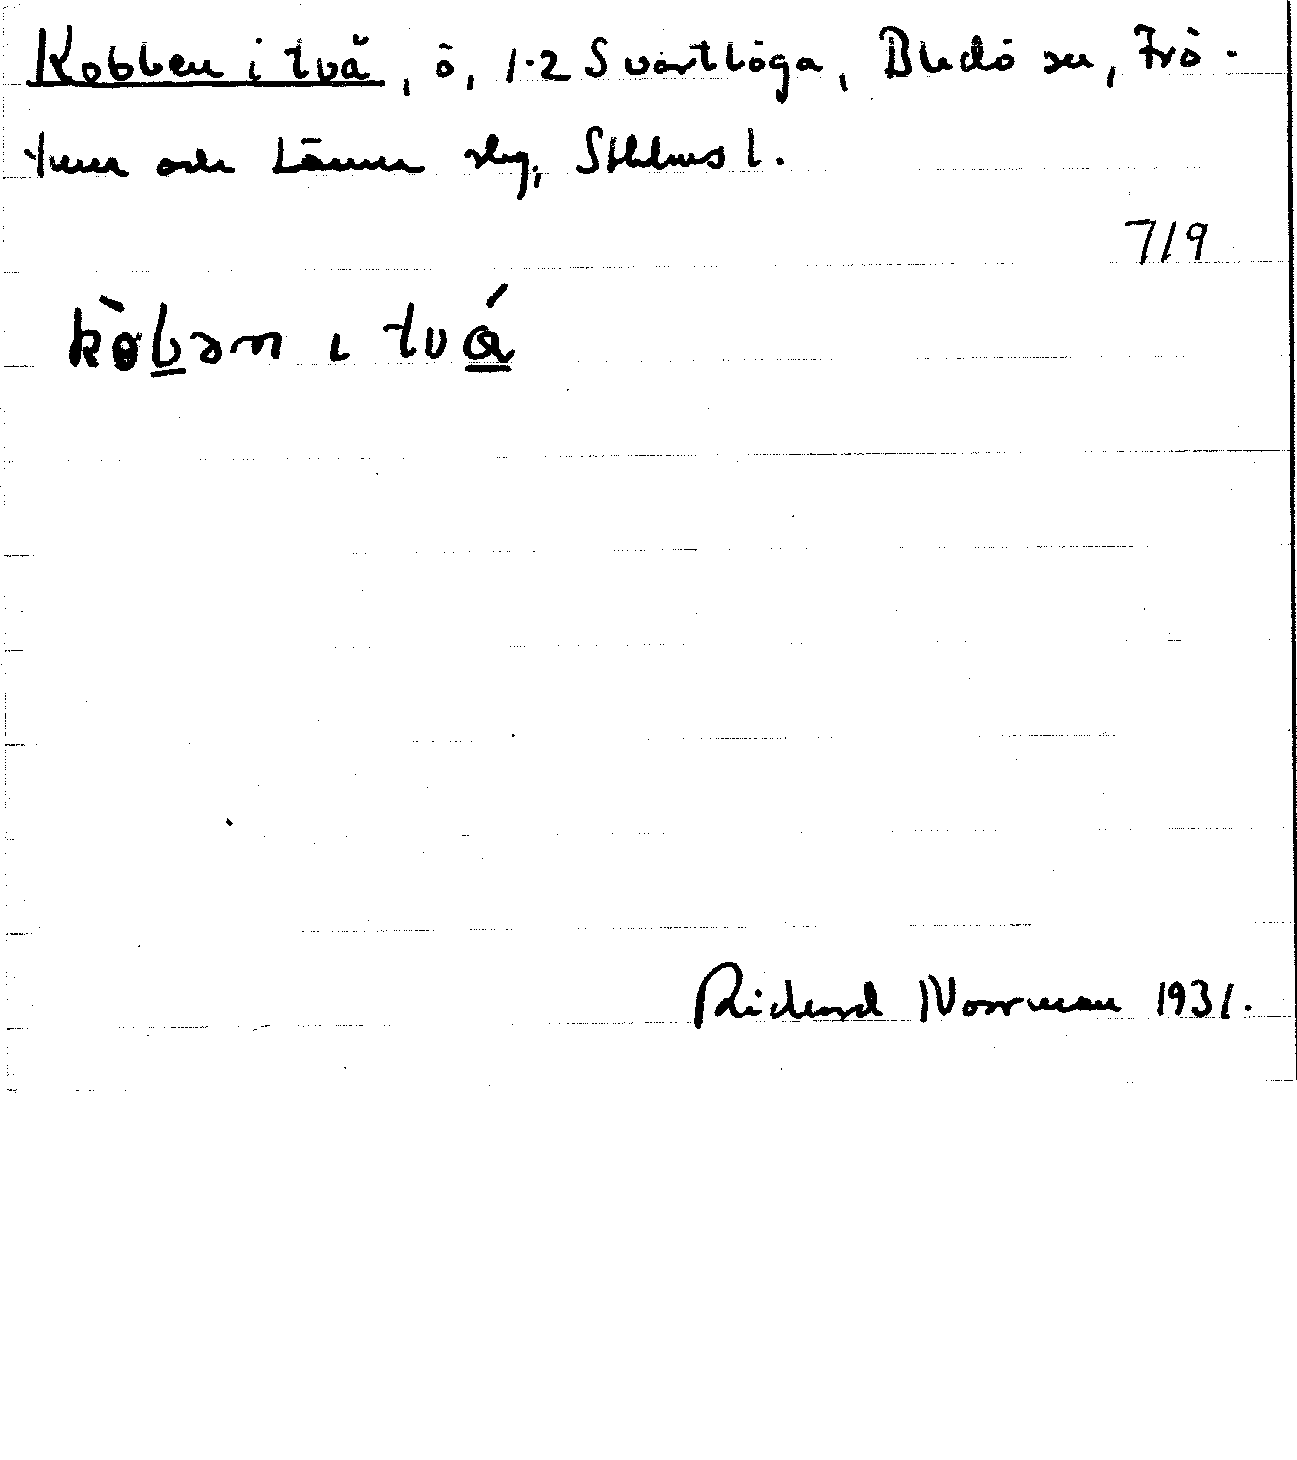 Kobben i två, ö, 1.2 Svartlöga, Blidö sn, Frö-
tuna och Länna slg, Sthlms l.
719
kòb̲ən ɩ tvá̲
Richard Norrman 1931.